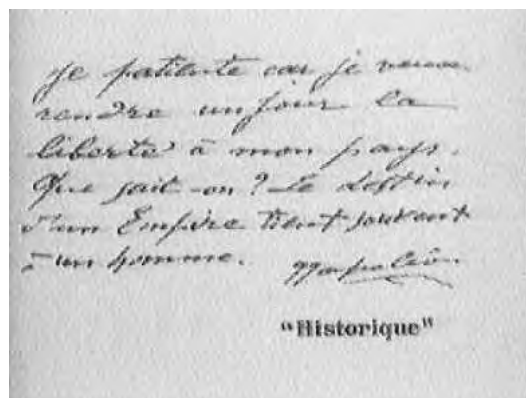 Je patiente car je veux
rendre un jour la
liberté à mon pays.
Que sait-on? Le destin
d'un Empire tient souvent
à un homme. Napoléon
"Historique"